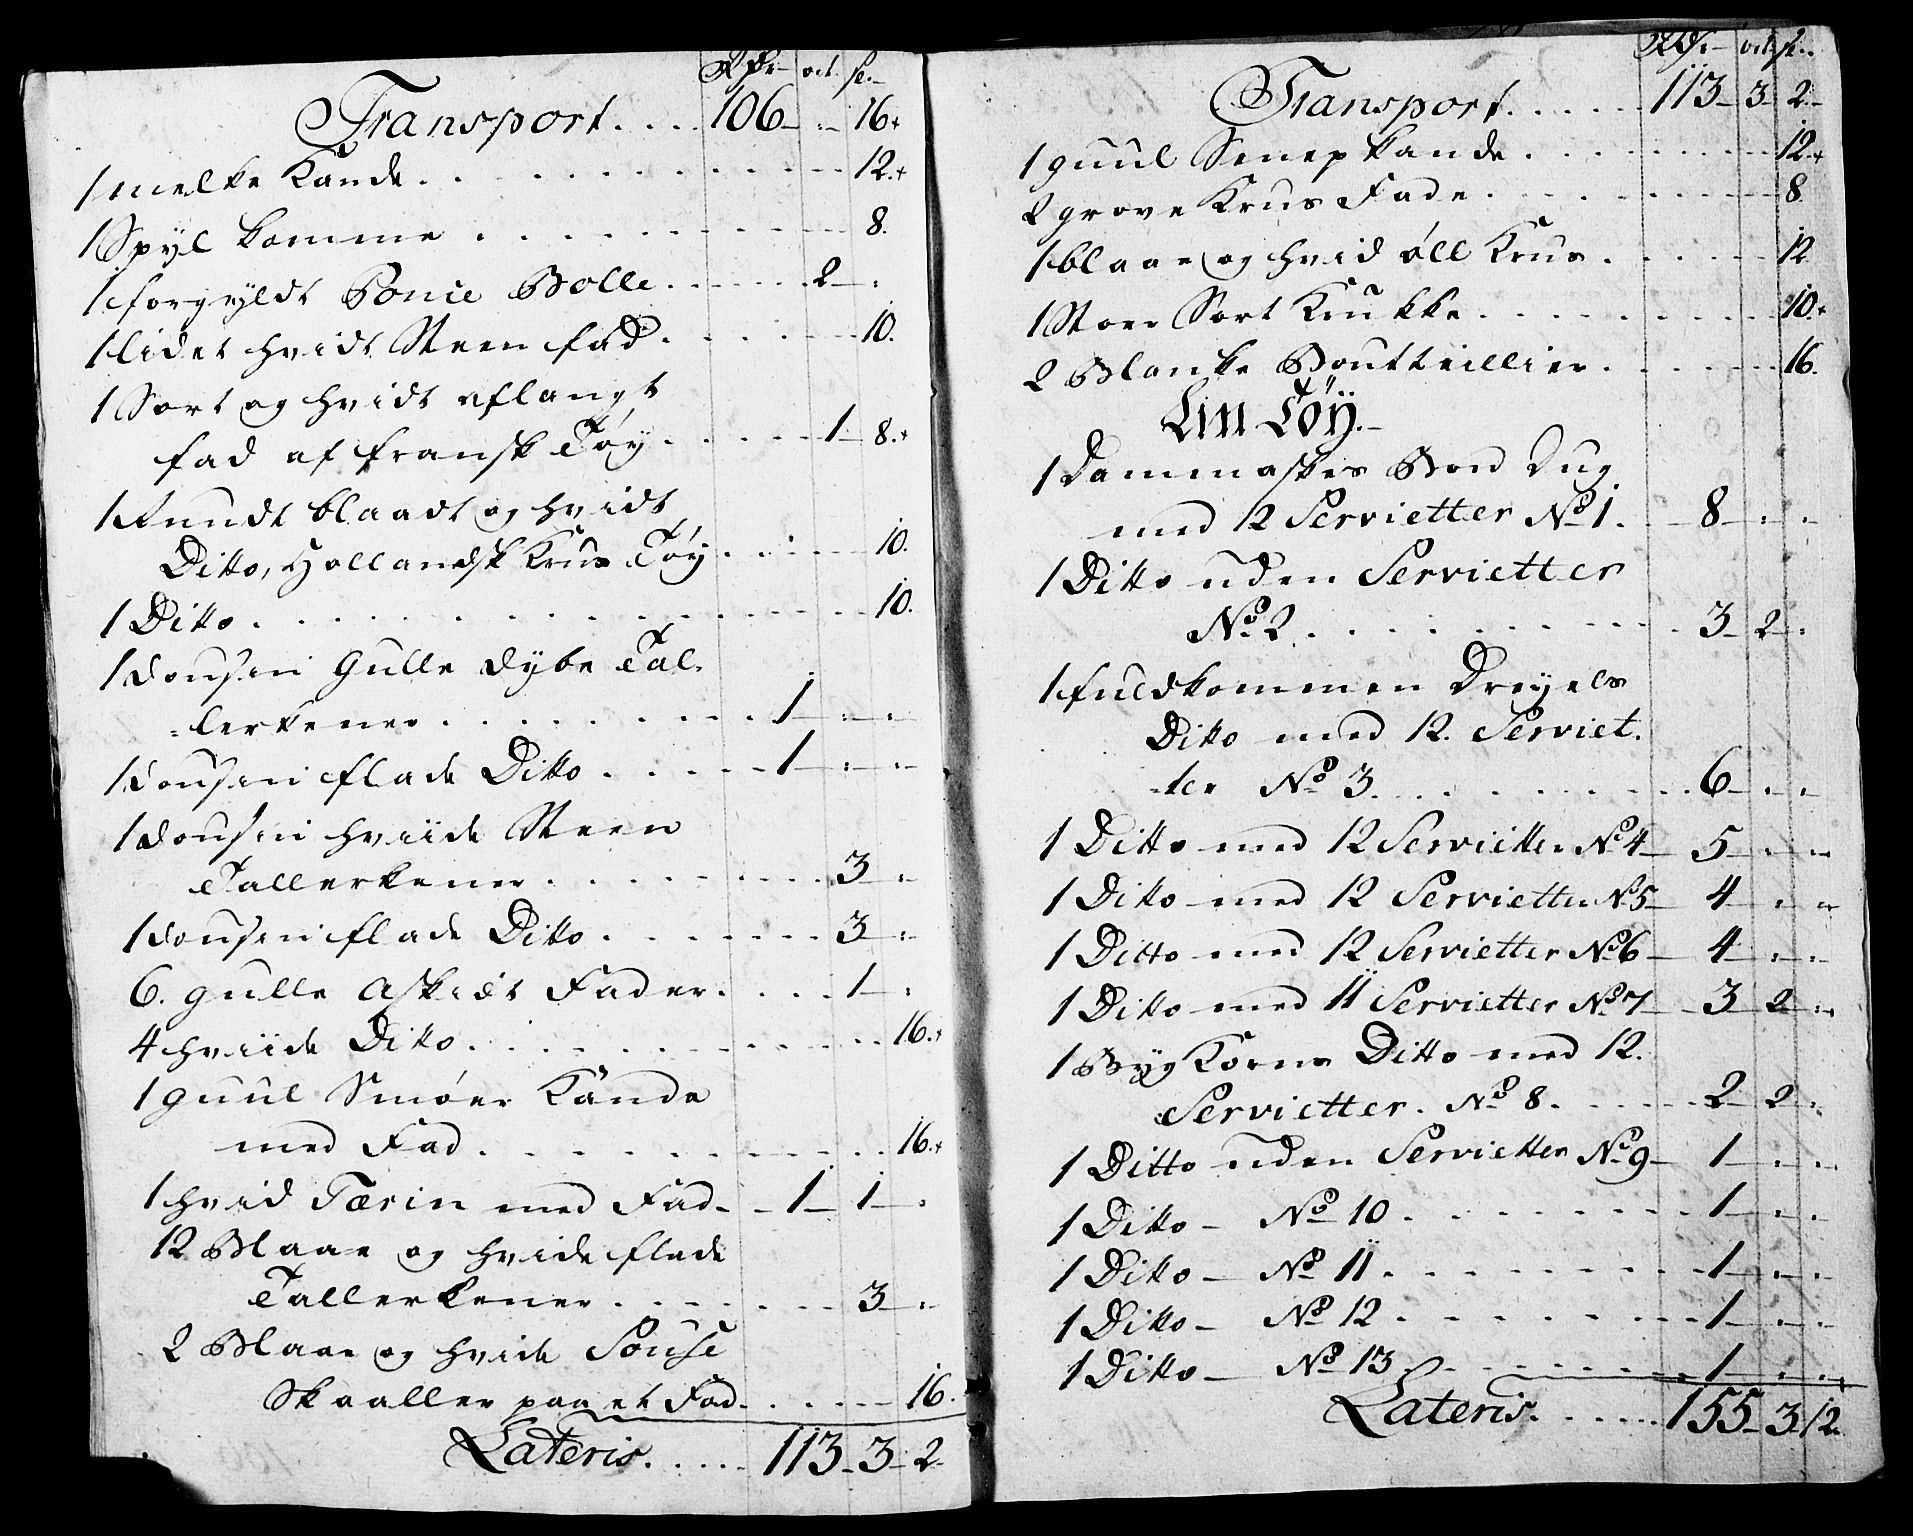 Rdr. ort. sk.
Transport. . . . 106 – : – 16
1 melke Kande . . . 12.
1 Spyl komme . . . 8.
1 forgyldt Ponce Bolle . . . 2 – :
1 lidet hvidt Steen fad . . . 10.
1 Sort og hvidt aflangt
fad af fransk Tøy . . . 1 – 8.
1 Rundt blaadt og hvidt
Ditto, Hollandsk Krus Tøy . . . 10.
1 Ditto . . . 10.
1 Dousin Gulle dybe Tal-
=lerkener . . . 1 – : – : –
1 Dousin flade Ditto . . . 1 – : – : –
1 Dousin hviide Steen
Tallerkener . . . 3 – :
1 Dousin flade Ditto . . . 3 – :
6. gulle Askidt Fader . . . 1 – :
4 hviide Ditto . . . 16.
1 guul Smøer Kande
med Fad . . . 16.
1 hvid Tærin med Fad – – 1 – 1 – :
12 Blaae og hvide flade
Tallerkener . . . 3 – :
2 Blaae og hvide Souse
Skaaller paa et Fad . . . 16.
Lateris . . . 113 – 3 – 2 –
Rdr. ort. sk.
Transport. . . . 113 – 3 – 2 –
1 guul Senep kande . . . 12.
2 grove Krus Fade . . . 8
1 blaae og hvid øll Krus . . . 12
1 Stoer Sort Krukke . . . 10.
2 Blanke Boutteillier . . . 16.
Lin Tøy. –
1 Dammaskes Bord Dug
med 12 Servietter No 1. – 8 – : – :
1 Ditto uden Servietter
No. 2 . . . 3 – 2 – :
1 fuldkommen Dreyels
Ditto med 12. Serviet.
-ter No 3 . . . 6 – : – :
1 Ditto med 12 Servietter No 4 – 5 – : – : –
1 Ditto med 12 Servietter No 5 – 4 – : – : –
1 Ditto med 12 Servietter No 6 – 4 – : – : –
1 Ditto med 11 Servietter No 7 – 3 – 2 – : –
1 Byg Korns Ditto med 12.
Servietter. No 8 . . . 2 – 2 – :
1 Ditto uden Servietter No 9 – 1 – : – : –
1 Ditto – No 10 . . . 1 – : – : –
1 Ditto – No 11 . . . 1 – : – : –
1 Ditto – No 12 . . . 1 – : – : –
1 Ditto – No 13 . . . 1 – : – : –
Lateris . . . 155 – 3 – 12.